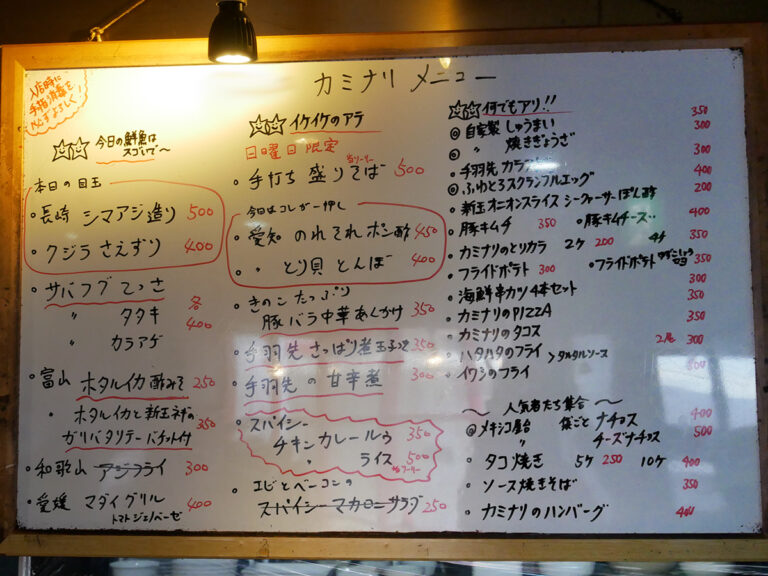 カミナリ メニュー
入店時に
手指消毒を
必ずよろしく!
☆☆ 今日の鮮魚は
スゴいで〜
本日の目玉
・長崎 シマアジ造り 500
・クジラ さえずり 400
・サバフグ てっさ
〃 タタキ 各400
〃 カラアゲ
・富山 ホタルイカ酢みそ 250
・ホタルイカと新玉ネギの
ガリバタソテー バゲット付 350
・和歌山 アジフライ 300
・愛媛 マダイグリル 400
トマトジェノベーゼ
☆☆ イケイケのアテ
日曜日限定
・手打ち 盛りそば 500
今日はコレが一押し
・愛知 のれそれポン酢 450
・〃 とり貝 とんぼ 400
・きのこたっぷり
豚バラ中華あんかけ 350
・手羽先 さっぱり煮玉子つき 350
・手羽先 の 甘辛煮 300
・スパイシー
チキンカレー ルゥ 350
〃 ライス 500
・エビとベーコンの
スパイシーマカロニサラダ 250
☆☆ 何でもアリ!!
◎ 自家製 しゅうまい 350
◎ 〃 焼きぎょうざ 300
・手羽先 カラ 300
◎ ふわとろスクランブルエッグ 400
・新玉オニオンスライス シーフゥーサーぽん酢 200
・豚キムチ 350 ・豚キムチチーズ 400
・カミナリのとりカラ 2ケ 200 4ケ 350
・フライドポテト 300 ・フライドポテト ゆずこしょうマヨ 350
・海鮮串カツ4本セット 300
・カミナリのPIZZA 350
・カミナリのタコス 350
・ハタハタのフライ >タルタルソース 2尾 300
・イワシのフライ 350
〜 人気者たち集合 〜
◎メキシコ屋台 袋ごと ナチョス 400
チーズナチョス 500
・タコ焼き 5ケ 250 10ケ 400
・ソース焼きそば 350
・カミナリのハンバーグ 400